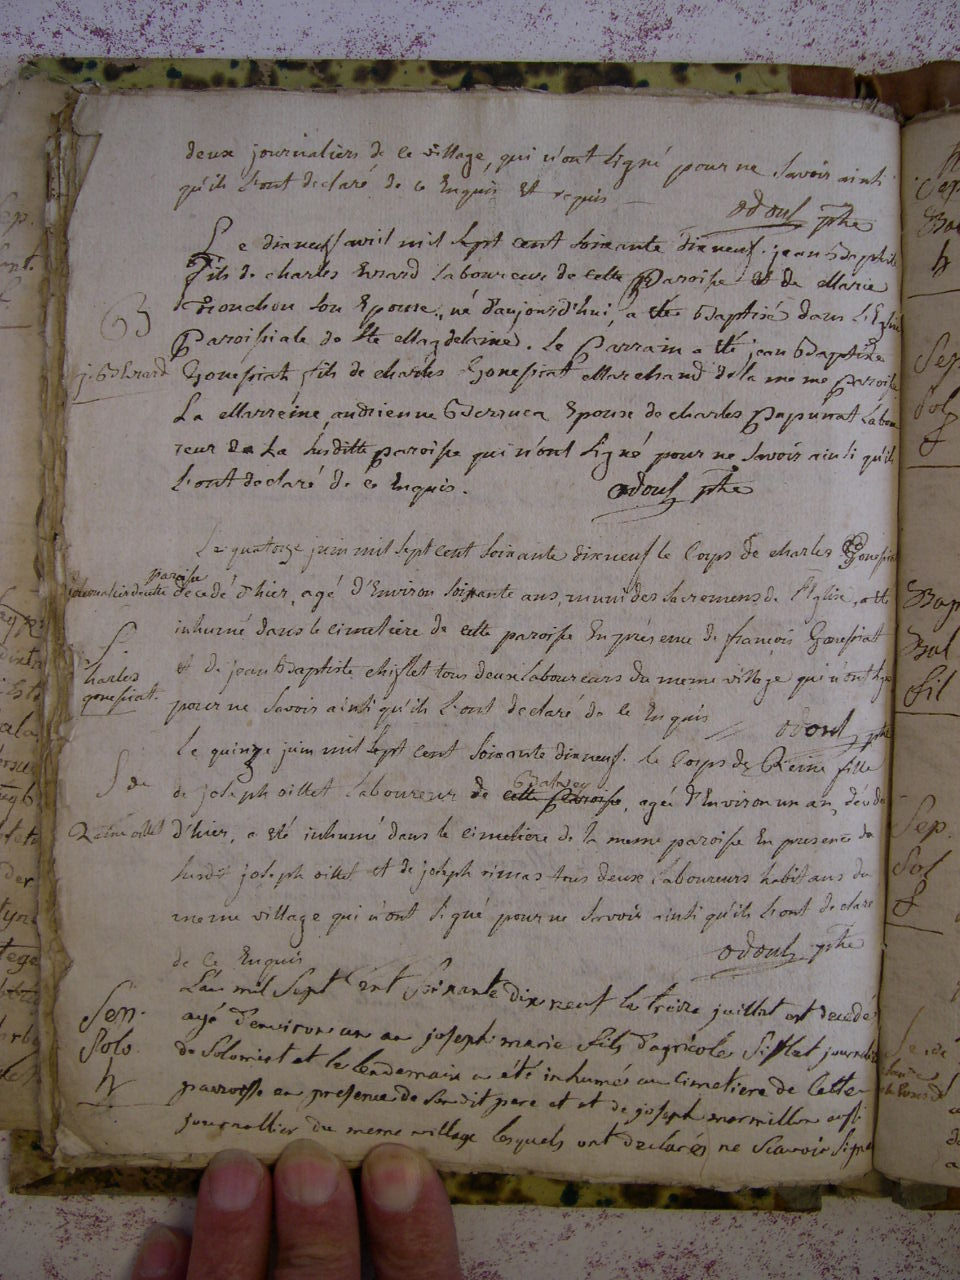 deux journaliers de ce village, qui n'ont signé pour ne Savoir ainsi
qu'ils l'ont declaré de ce Enquis Et requis
odoul ptre
Le dixneuf avril mil sept cent soixante dixneuf. jean Baptiste
fils de charles Evrard laboureur de cette Paroisse et de Marie
son Epouse, né d'aujourd'hui, a été Baptisé dans l'Eglise
63
Paroissiale de Ste Magdelaine. Le Parrain a été jean Baptiste
j. B. Evrard
Gonessiat fils de charles Gonessiat Marchand de la meme paroisse
La Marreine andrienne Epouse de charles Papunat labou
reur de La susditte paroisse qui n'ont signé pour ne Savoir ainsi qu'ils
l'ont declaré de ce Enquis.
odoul ptre
Le quatorze juin mil sept cent soixante dixneuf le Corps de charles Gonessiat
paroisse
decedé d'hier, agé d'Environ soixante ans, muni des sacremens de l'Eglise, a été
inhumé dans le cimetiere de cette paroisse En présence de françois Gonessiat
S.
charles
gonessiat.
et de jean Baptiste chiflet tous deux laboureurs du meme village qui n'ont signé
pour ne Savoir ainsi qu'ils l'ont declaré de ce Enquis
odoul ptre
Le quinze juin mil sept cent soixante dixneuf. le Corps de Reine fille
S de
de joseph oillet laboureur de cette Paroisse, agée d'Environ un an, décédée
Reine oillet
d'hier, a été inhumé dans le cimetiere de la meme paroisse En presence du
susdit joseph oillet et de joseph rimas tous deux laboureurs habitans du
meme village qui n'ont signé pour ne Savoir ainsi qu'ils l'ont declaré
de ce Enquis
odoul ptre
L'an mil sept cent soixante dix neuf le treize juillet est decedé
Sep.
Solo
agé d'environ un an joseph marie fils d'agricole Siflet journalier
de Solomiat et le lendemain a été inhumé au cimetiere de cette
parroisse en presence de Sondit pere et et de joseph mormillon aussi
journallier du meme village lesquels ont declarés ne Scavoir Signer